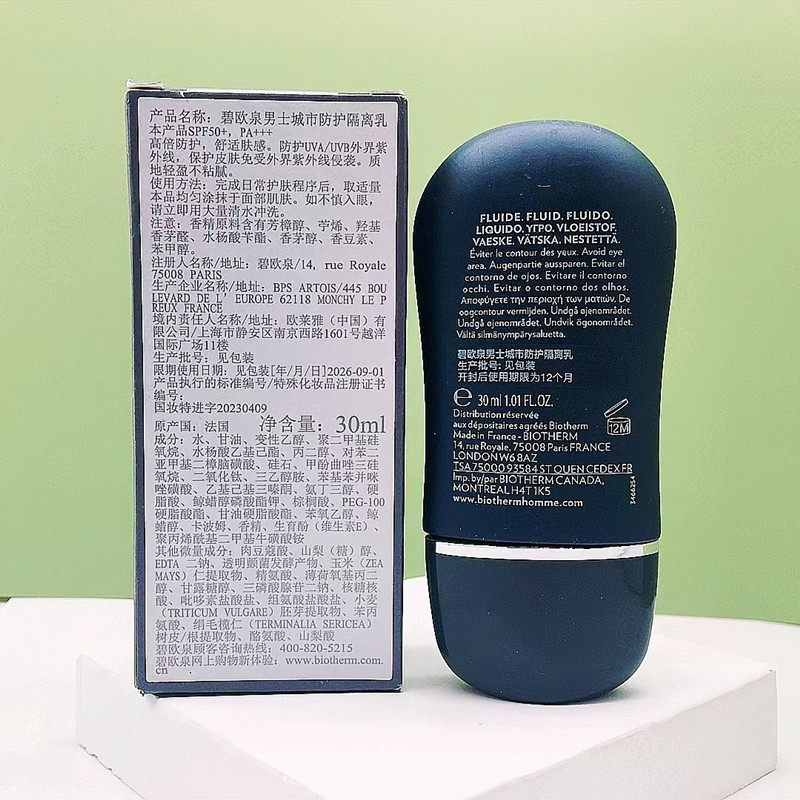 产品名称：碧欧泉男士城市防护隔离乳
本产品SPF50+，PA+++
高倍防护，舒适肤感。防护UVA/UVB外界紫
外线，保护皮肤免受外界紫外线侵袭。质
地轻盈不粘腻。
使用方法：完成日常护肤程序后，取适量
本品均匀涂抹于面部肌肤。如不慎入眼，
请立即用大量清水冲洗。
注意：香精原料含有芳樟醇、苧烯、羟基
香茅醛、水杨酸苄酯、香茅醇、香豆素、
苯甲醇。
注册人名称/地址：碧欧泉/14, rue Royale
75008 PARIS
生产企业名称/地址：BPS ARTOIS/445 BOU
LEVARD DE L' EUROPE 62118 MONCHY LE P
REUX FRANCE
境内责任人名称/地址：欧莱雅（中国）有
限公司/上海市静安区南京西路1601号越洋
国际广场11楼
生产批号：见包装
限期使用日期：见包装[年/月/日]2026-09-01
产品执行的标准编号/特殊化妆品注册证书
编号：
国妆特进字20230409
原产国：法国 净含量：30ml
成分：水、甘油、变性乙醇、聚二甲基硅
氧烷、水杨酸乙基己酯、丙二醇、对苯二
亚甲基二樟脑磺酸、硅石、甲酚曲唑三硅
氧烷、二氧化钛、三乙醇胺、苯基苯并咪
唑磺酸、乙基己基三嗪酮、氨丁三醇、硬
脂酸、鲸蜡醇磷酸酯钾、棕榈酸、PEG-100
硬脂酸酯、甘油硬脂酸酯、苯氧乙醇、鲸
蜡醇、卡波姆、香精、生育酚（维生素E）、
聚丙烯酰基二甲基牛磺酸铵
其他微量成分：肉豆蔻酸、山梨（糖）醇、
EDTA 二钠、透明颤菌发酵产物、玉米（ZEA
MAYS）仁提取物、精氨酸、薄荷氧基丙二
醇、甘露糖醇、三磷酸腺苷二钠、核糖核
酸、吡哆素盐酸盐、组氨酸盐酸盐、小麦
（TRITICUM VULGARE）胚芽提取物、苯丙
氨酸、绢毛榄仁（TERMINALIA SERICEA）
树皮/根提取物、酪氨酸、山梨酸
碧欧泉顾客咨询热线：400-820-5215
碧欧泉网上购物新体验：www.biotherm.com.
cn
FLUIDE. FLUID. FLUIDO.
LIQUIDO. ΥΓΡΟ. VLOEISTOF.
VAESKE. VÄTSKA. NESTETTÄ.
Éviter le contour des yeux. Avoid eye
area. Augenpartie aussparen. Evitar el
contorno de ojos. Evitare il contorno
occhi. Evitar o contorno dos olhos.
Αποφύγετε την περιοχή των ματιών. De
oogcontour vermijden. Undgå øjenområdet.
Undgå øjenområdet. Undvik ögonområdet.
Vältä silmänympärysaluetta.
碧欧泉男士城市防护隔离乳
生产批号：见包装
开封后使用期限为12个月
℮ 30 ml 1.01 FL.OZ.
Distribution réservée
aux dépositaires agréés Biotherm
Made in France - BIOTHERM
14, rue Royale, 75008 Paris FRANCE
LONDON W6 8AZ
TSA 75000 93584 ST OUEN CEDEX FR
Imp. by/par BIOTHERM CANADA,
MONTREAL H4T 1K5
www.biothermhomme.com
12M
3466254